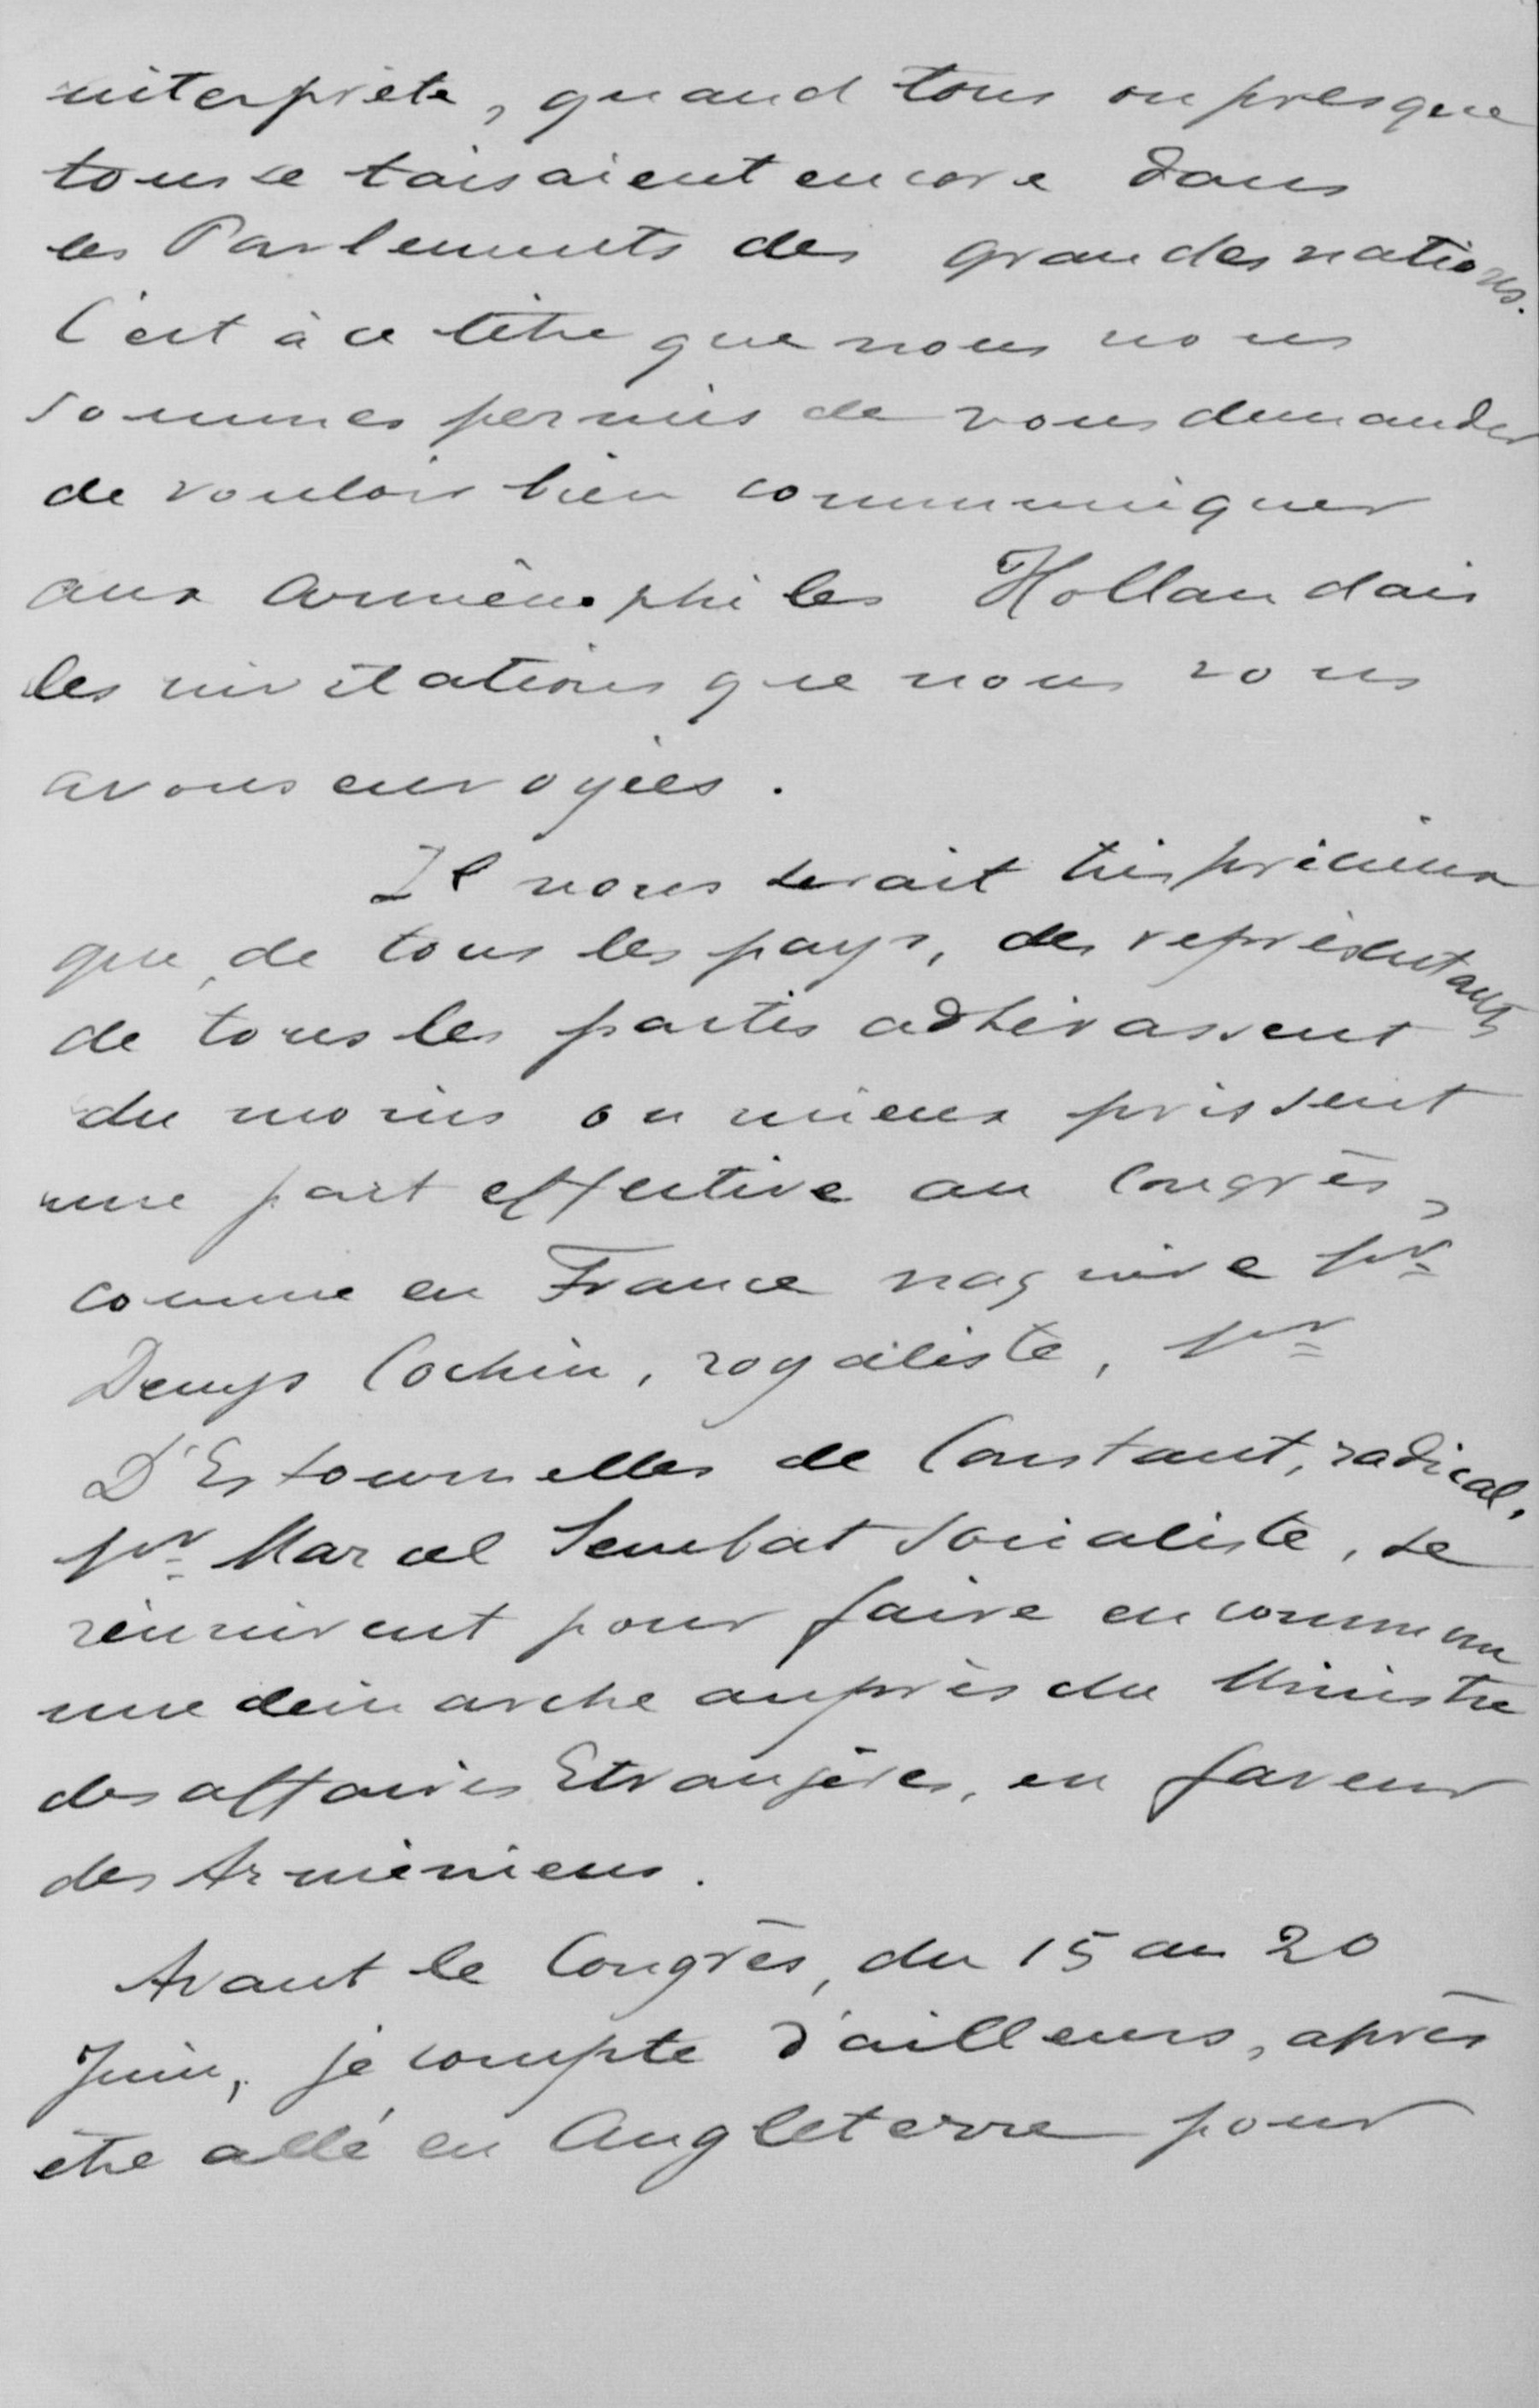 interprète, quand tous ou presque
tous se taisaient encore dans
les Parlements des grandes nations.
C'est à ce titre que nous nous
sommes permis de vous demander
de vouloir bien communiquer
aux Arménophiles Hollandais
les invitations que nous vous
avons envoyées.
Il nous serait très précieux
que, de tous les pays, des représentants
de tous les partis adhérassent
du moins ou mieux prissent
une part effective au Congrès,
comme en France naguère
Denys Cochin, royaliste,
D'Estournelles de Constant, radical,
Marcel Sembat socialiste, se
réunirent pour faire en commun
une démarche auprès du Ministre
des affaires Etrangères, en faveur
des Arméniens.
Avant le Congrès, du 15 au 20
Juin, je compte d'ailleurs, après
être allé en Angleterre pour